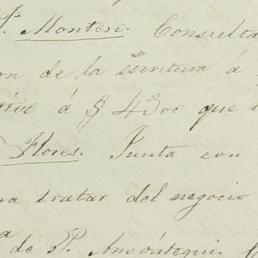 J. Montero. Consulta
on de la escritura á
á $ 4300 que
Flores. Junta con
a tratar del negocio
a
de P. Amóstegui.